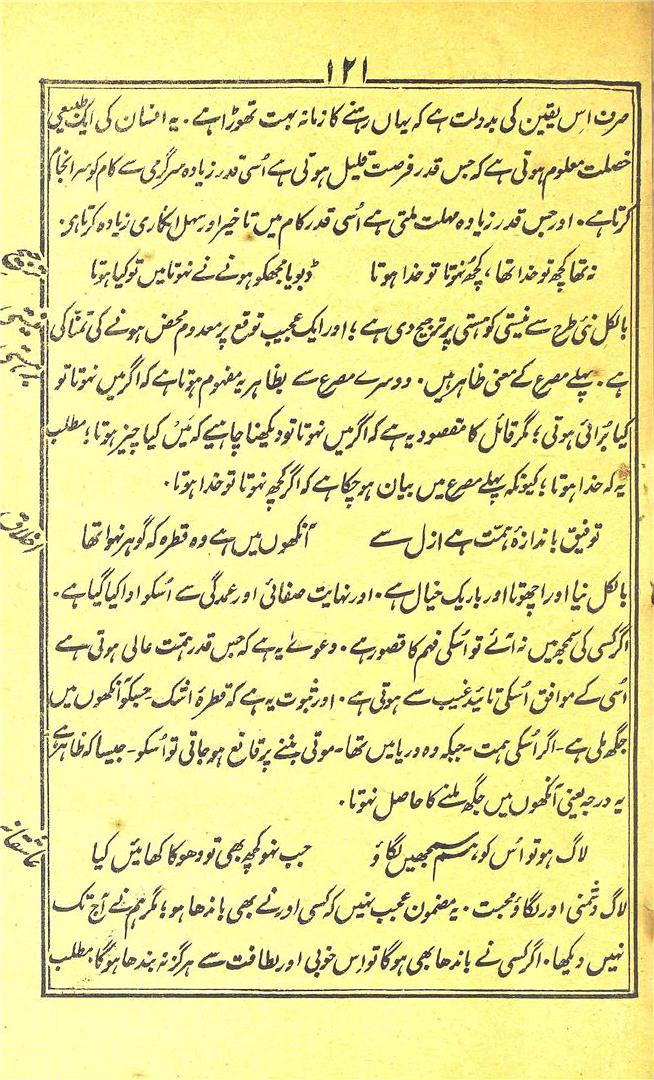 ۱۲۱
صرف اس یقین کی بدولت ہے کہ یہاں رہنے کا زمانہ بہت تھوڑا ہے۔ یہ انسان کی ایک طبیعی
خصلت معلوم ہوتی ہے کہ جس قدر فرصت قلیل ہوتی ہے اُسی قدر زیادہ سرگرمی سے کام کو سرانجام
کرتا ہے۔ اور جس قدر زیادہ مہلت ملتی ہے اُسی قدر کام میں تاخیر اور سہل انکاری زیادہ کرتا ہی۔
نہ تھا کچھ تو خدا تھا، کچھ نہوتا تو خدا ہوتا ڈبویا مجھکو ہونے نے نہوتا میں تو کیا ہوتا
ترجیح
نیستی
بر ہستی
بالکل نئی طرح سے نیستی کو ہستی پر ترجیح دی ہے؛ اور ایک عجیب توقع پر معدوم محض ہونے کی تمنّا کی
ہے۔ پہلے مصرع کے معنی ظاہر ہیں۔ دوسرے مصرع سے بظاہر یہ مفہوم ہوتا ہے کہ اگر میں نہوتا تو
کیا بُرائی ہوتی؛ مگر قائل کا مقصود یہ ہے کہ اگر میں نہوتا تو دیکھنا چاہیے کہ مَیں کیا چیز ہوتا؛ مطلب
یہ کہ خدا ہوتا؛ کیونکہ پہلے مصرع میں بیان ہو چکا ہے کہ اگر کچھ نہوتا تو خدا ہوتا۔
توفیق باندازۂ ہمّت ہے ازل سے آنکھوں میں ہے وہ قطرہ کہ گوہر نہوا تھا
اخلاق
بالکل نیا اور اچھوتا اور باریک خیال ہے۔ اور نہایت صفائی اور عمدگی سے اُسکو ادا کیا گیا ہے۔
اگر کسی کی سمجھ میں نہ آئے تو اُسکی فہم کا قصور ہے۔ دعویٰ یہ ہے کہ جس قدر ہمّت عالی ہوتی ہے
اُسی کے موافق اُسکی تائید غیب سے ہوتی ہے۔ اور ثبوت یہ ہے کہ قطرۂ اشک جسکو آنکھوں میں
جگھ ملی ہے - اگر اُسکی ہمت - جبکہ وہ دریا میں تھا - موتی بننے پر قانع ہو جاتی تو اُسکو - جیسا کہ ظاہر ہے
یہ درجہ یعنی آنکھوں میں جگھ ملنے کا حاصل نہوتا۔
لاگ ہو تو اُس کو ہم سمجھیں لگاؤ جب نہو کچھ بھی تو دھوکا کھائیں کیا
عاشقانہ
لاگ دُشمنی اور لگاؤ محبت۔ یہ مضمون عجب نہیں کہ کسی اور نے بھی باندھا ہو؛ مگر ہم نے آج تک
نہیں دیکھا۔ اگر کسی نے باندھا بھی ہوگا تو اس خوبی اور لطافت سے ہرگز نہ بندھا ہوگا۔ مطلب